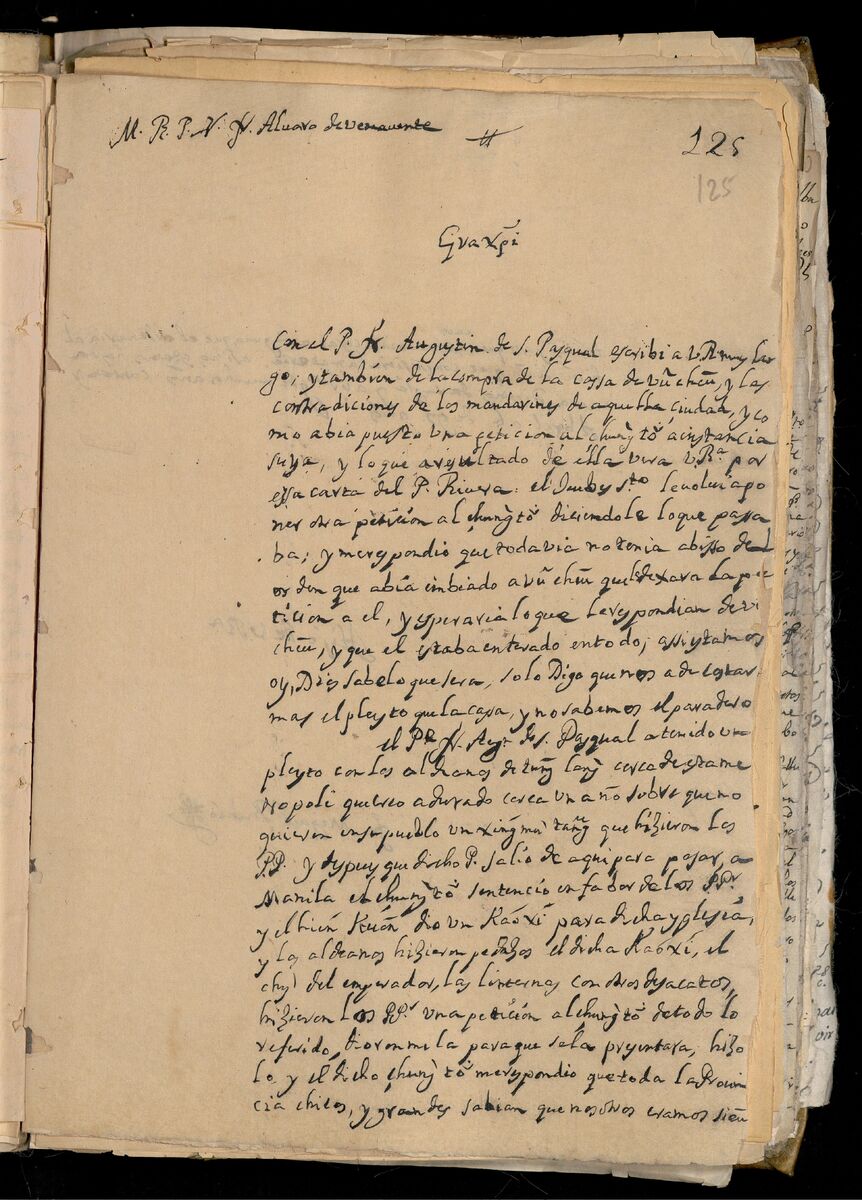 M. R. P. N. Fr. Alvaro de venauente
125
125
Con el P. Fr. Augustin de S. Pasqual escribi a V R muy lar
go; y tambien de la compra de la cassa de vû cheû, y las
contradiciones de los mandarines de aquella ciudad, y co
mo abia puesto una peticion al chung tô a instancia
suya, y lo que a resultado de ella vera V Rª por
essa carta del P. Rivera: el Sto le volui a po
ner otra peticion al chung tô diciendole lo que passa
ba; y me respondió que todavia no tenia abisso del
orden que abia embiado a vû cheû que le dexara la pe
ticion a el, y esperaria lo que le respondian de vû
cheu, y que el estaba enterado en todo; assi estamos
oy, Dios sabe lo que sera, solo Digo que nos a de costar
mas el pleyto que la casa, y no sabemos el paradero
el Pe Fr. Augn de S. Pasqual a tenido un
pleyto con los aldeanos de cerca de esta me
tropoli que creo a durado cerca un año sobre que no
quieren en su pueblo un que hizieron los
PP. y despues que dicho P. salio de aqui para pasar a
Manila el chung tô sentenció en fabor de los PPs
y el hien Kuôn dio un Kaóxí para dicha yglesia,
y los aldeanos hizieron pedazos el dicho Kaóxí, el
del emperador, las linternas con otros desacatos,
hizieron los PPs una peticion al chung tô de todo lo
referido, dioronmela para que se la presentara, hizo
lo y el dicho chung tô me respondio que toda la Provin
cia chicos, y grandes sabian que nosotros eramos sieu